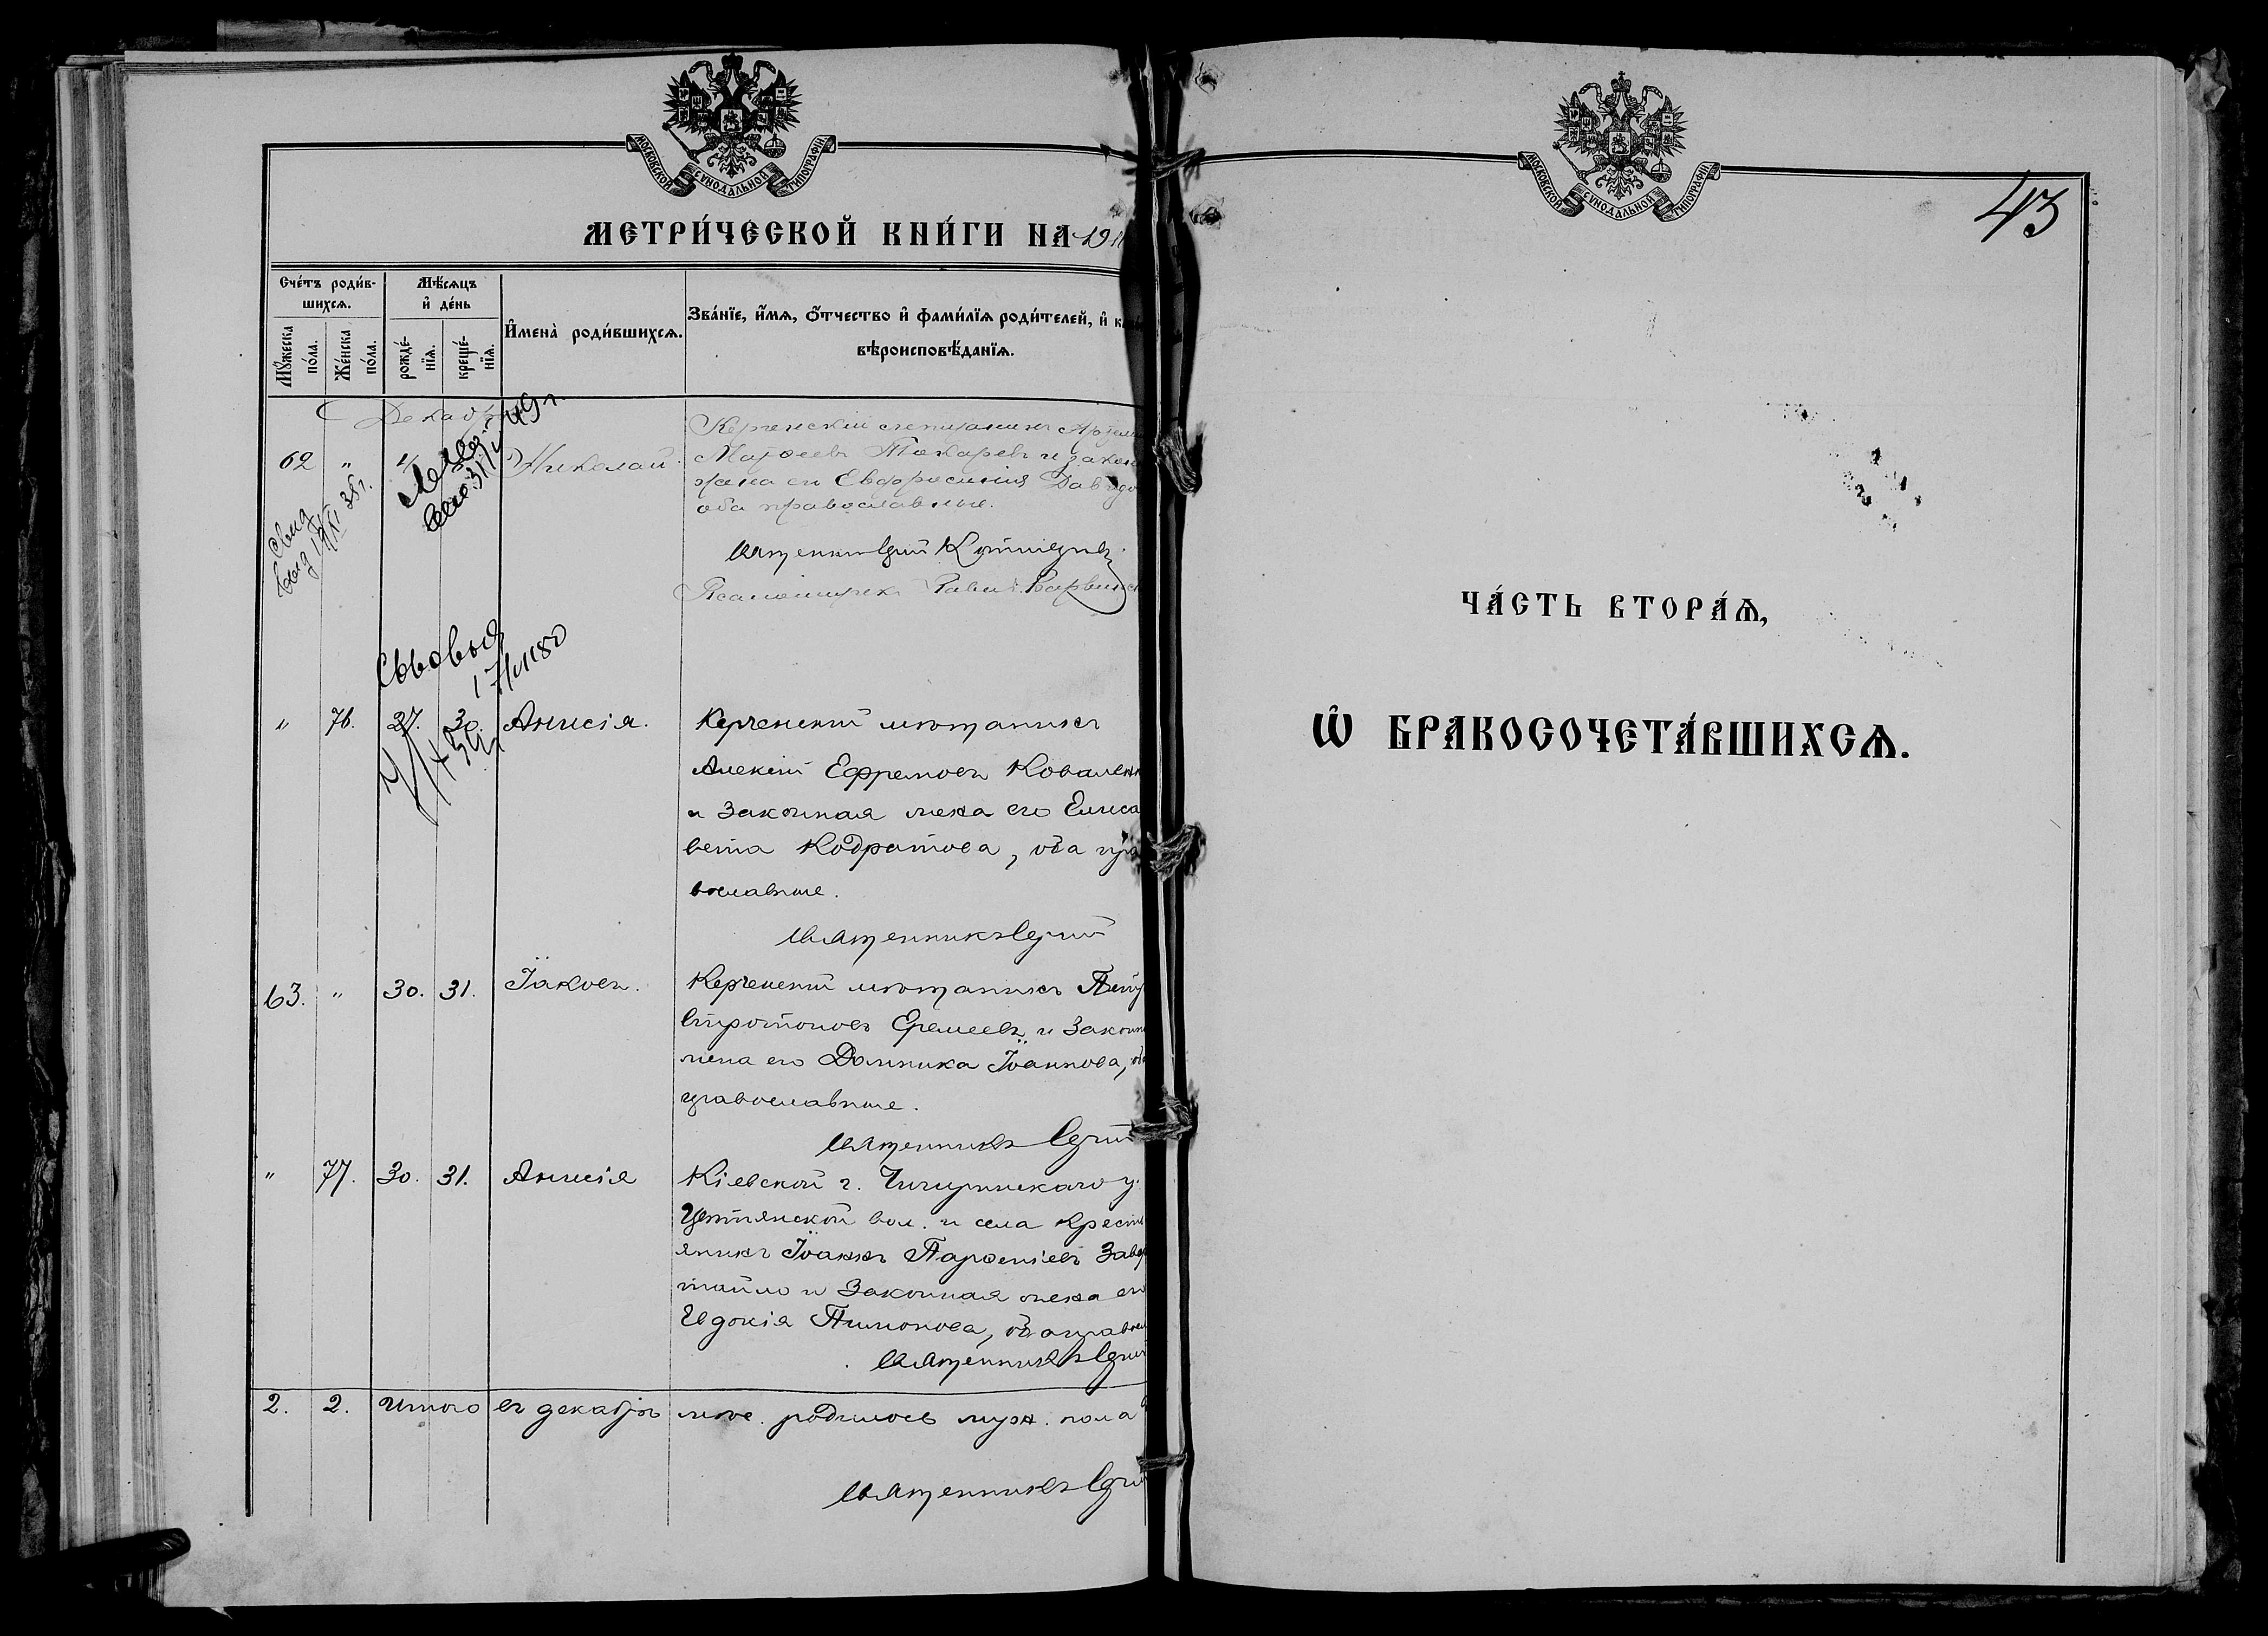 МОСКОВСКОЙ СѴНОДАЛЬНОЙ ТИПОГРАФІИ
МЕТРИ́ЧЕСКОЙ КНИ́ГИ НА 191
Сче́тъ роди́в-
шихсѧ.
Мꙋ́жеска
по́ла.
Же́нска
по́ла.
Мѣ́сѧцъ
и҆ де́нь
рожде́-
нїѧ.
креще́-
нїѧ.
И҆мена̀ роди́вшихсѧ.
Зва́нїе, и҆́мѧ, ѻ҆́тчество и҆ фами́лїѧ роди́телей, и҆ к
вѣроисповѣ́данїѧ.
Декабрь
62 " Николай. Керченскій мѣщанинъ
Матѳеевъ Токаревъ и закон
жена его Евфросинія Давидо
оба православные.
Свид
выд XI 38 г.
49 г.
Священникъ Сергій
Псаломщикъ Павелъ
17/VII 80
" 76. 27. 30. Анисія. Керченскій мѣщанинъ
Алексій Ефремовъ Ковален
и законная жена его Елиса
вета Кодратова, оба пра
вославные.
Священникъ Сергій
63. " 30. 31. Іаковъ. Керченскій мѣщанинъ Петр
Еремеевъ и законн
жена его Домника Іоаннова, об
православные.
Священникъ Сергій
" 77. 30. 31. Анисія Кіевской г. Чигиринскаго у.
вол. и села крестья
янинъ Іоаннъ Парѳеніевъ Завер
тайло и законная жена его
Евдокія Пимонова, оба правосл
Священникъ Сергій
2. 2. Итого въ декабрѣ мѣс. родилось муж. пола
Священникъ Сергій
МОСКОВСКОЙ СѴНОДАЛЬНОЙ ТИПОГРАФІИ
43
ЧА́СТЬ ВТОРА́Ѧ,
Ѡ҆ БРАКОСОЧЕТА́ВШИХСѦ.